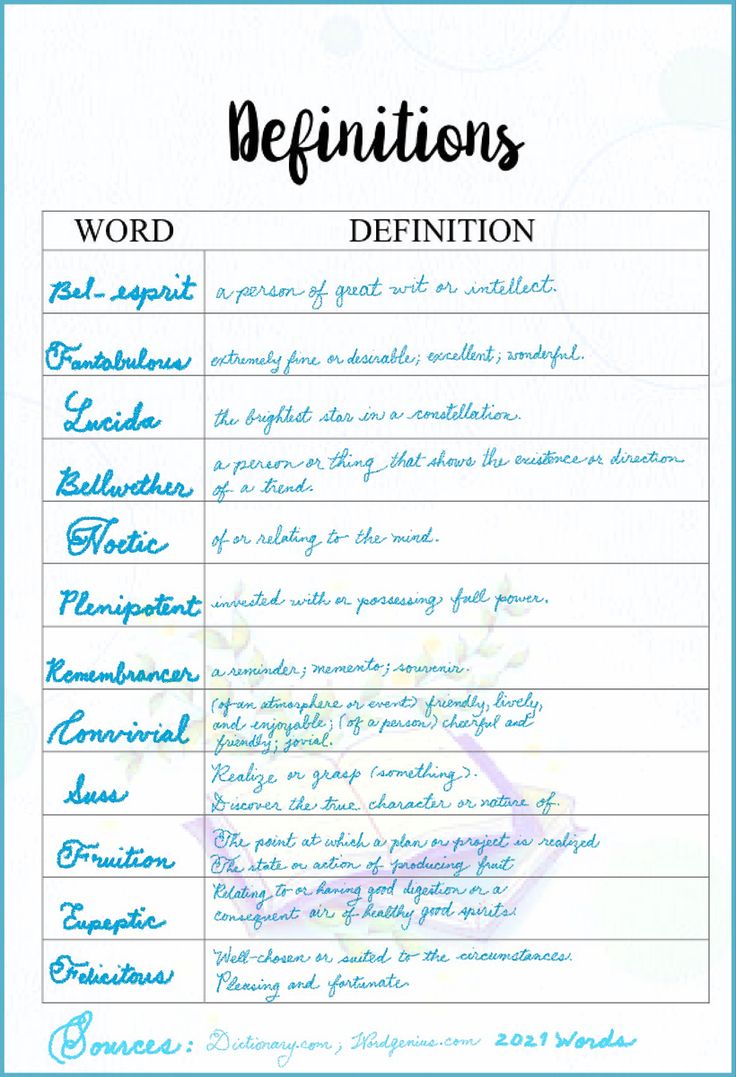 Definitions
WORD DEFINITION
Bel-esprit a person of great wit or intellect.
Fantabulous extremely fine or desirable; excellent; wonderful.
Lucida the brightest star in a constellation.
Bellwether a person or thing that shows the existence or direction
of a trend.
Noetic of or relating to the mind.
Plenipotent invested with or possessing full power.
Remembrancer a reminder; memento; souvenir.
Convivial (of an atmosphere or event) friendly, lively,
and enjoyable; (of a person) cheerful and
friendly; jovial.
Suss Realize or grasp (something).
Discover the true character or nature of.
Fruition The point at which a plan or project is realized
The state or action of producing fruit
Eupeptic Relating to or having good digestion or a
consequent air of healthy good spirits.
Felicitous Well-chosen or suited to the circumstances.
Pleasing and fortunate
Sources: Dictionary.com; Wordgenius.com 2021 Words